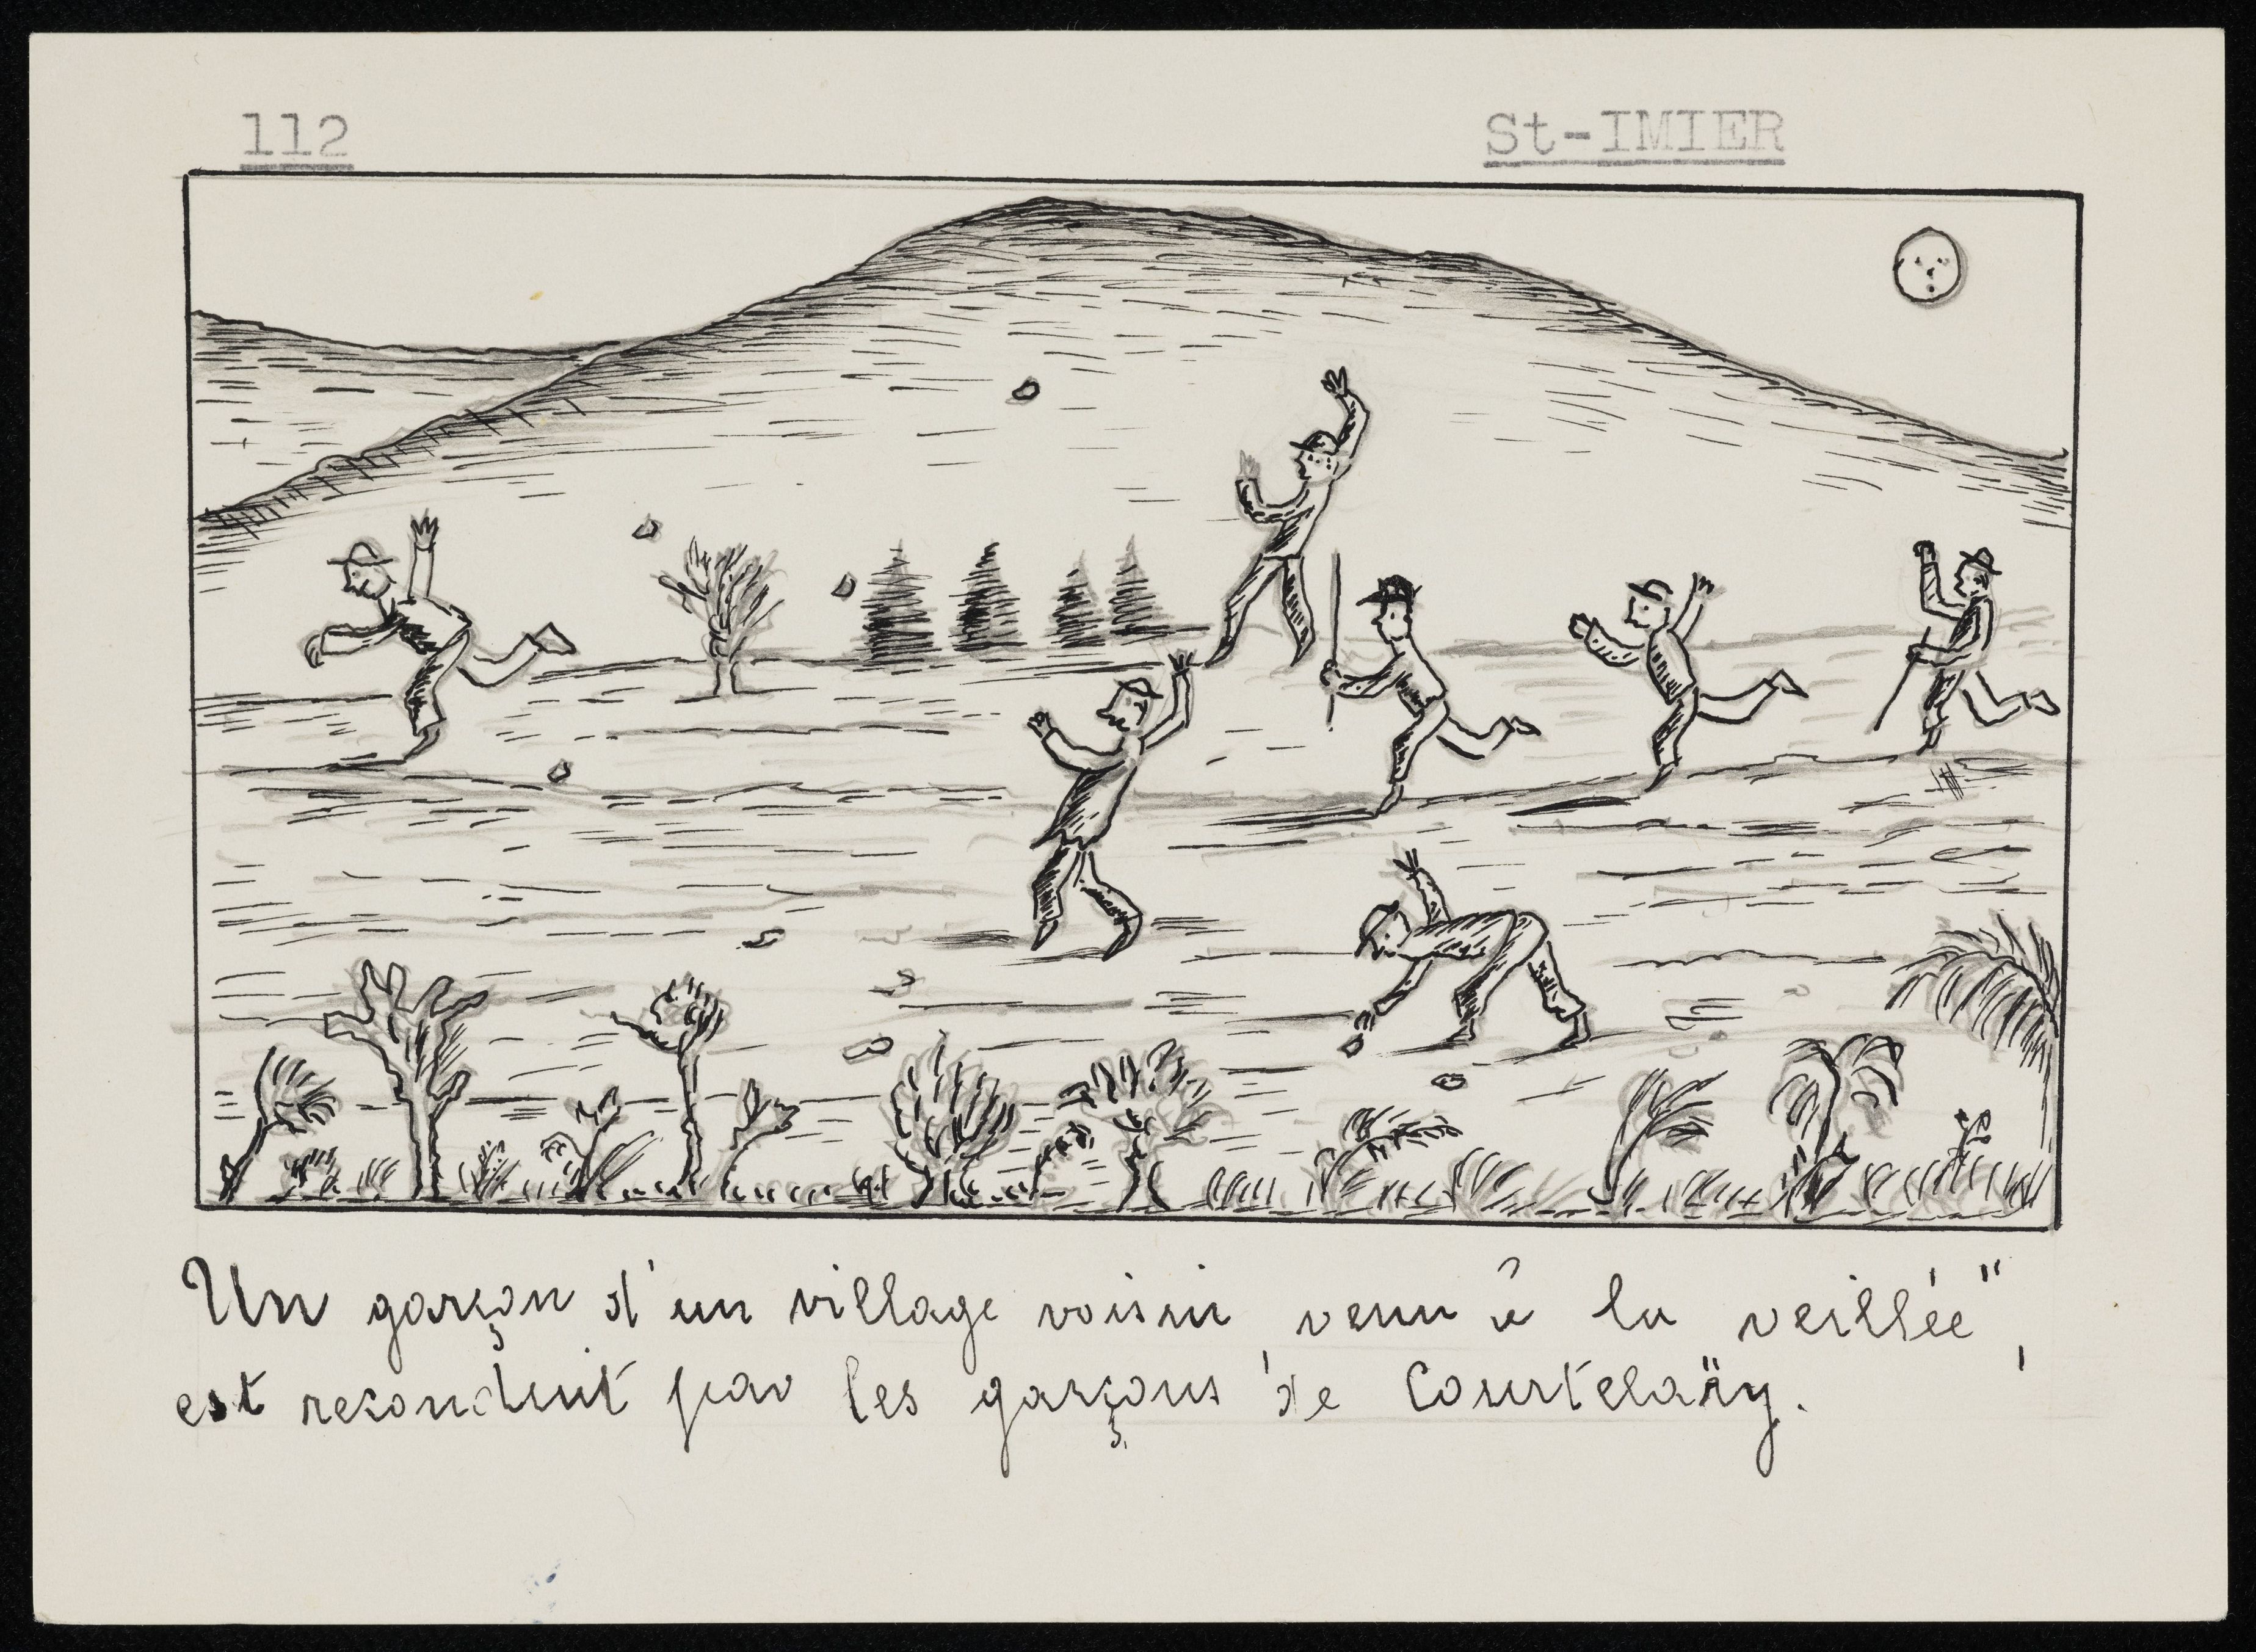 112
St-IMIER
Un garçon d'un village voisin venu à la veillée"
est reconduit par les garçons de Courtelary.